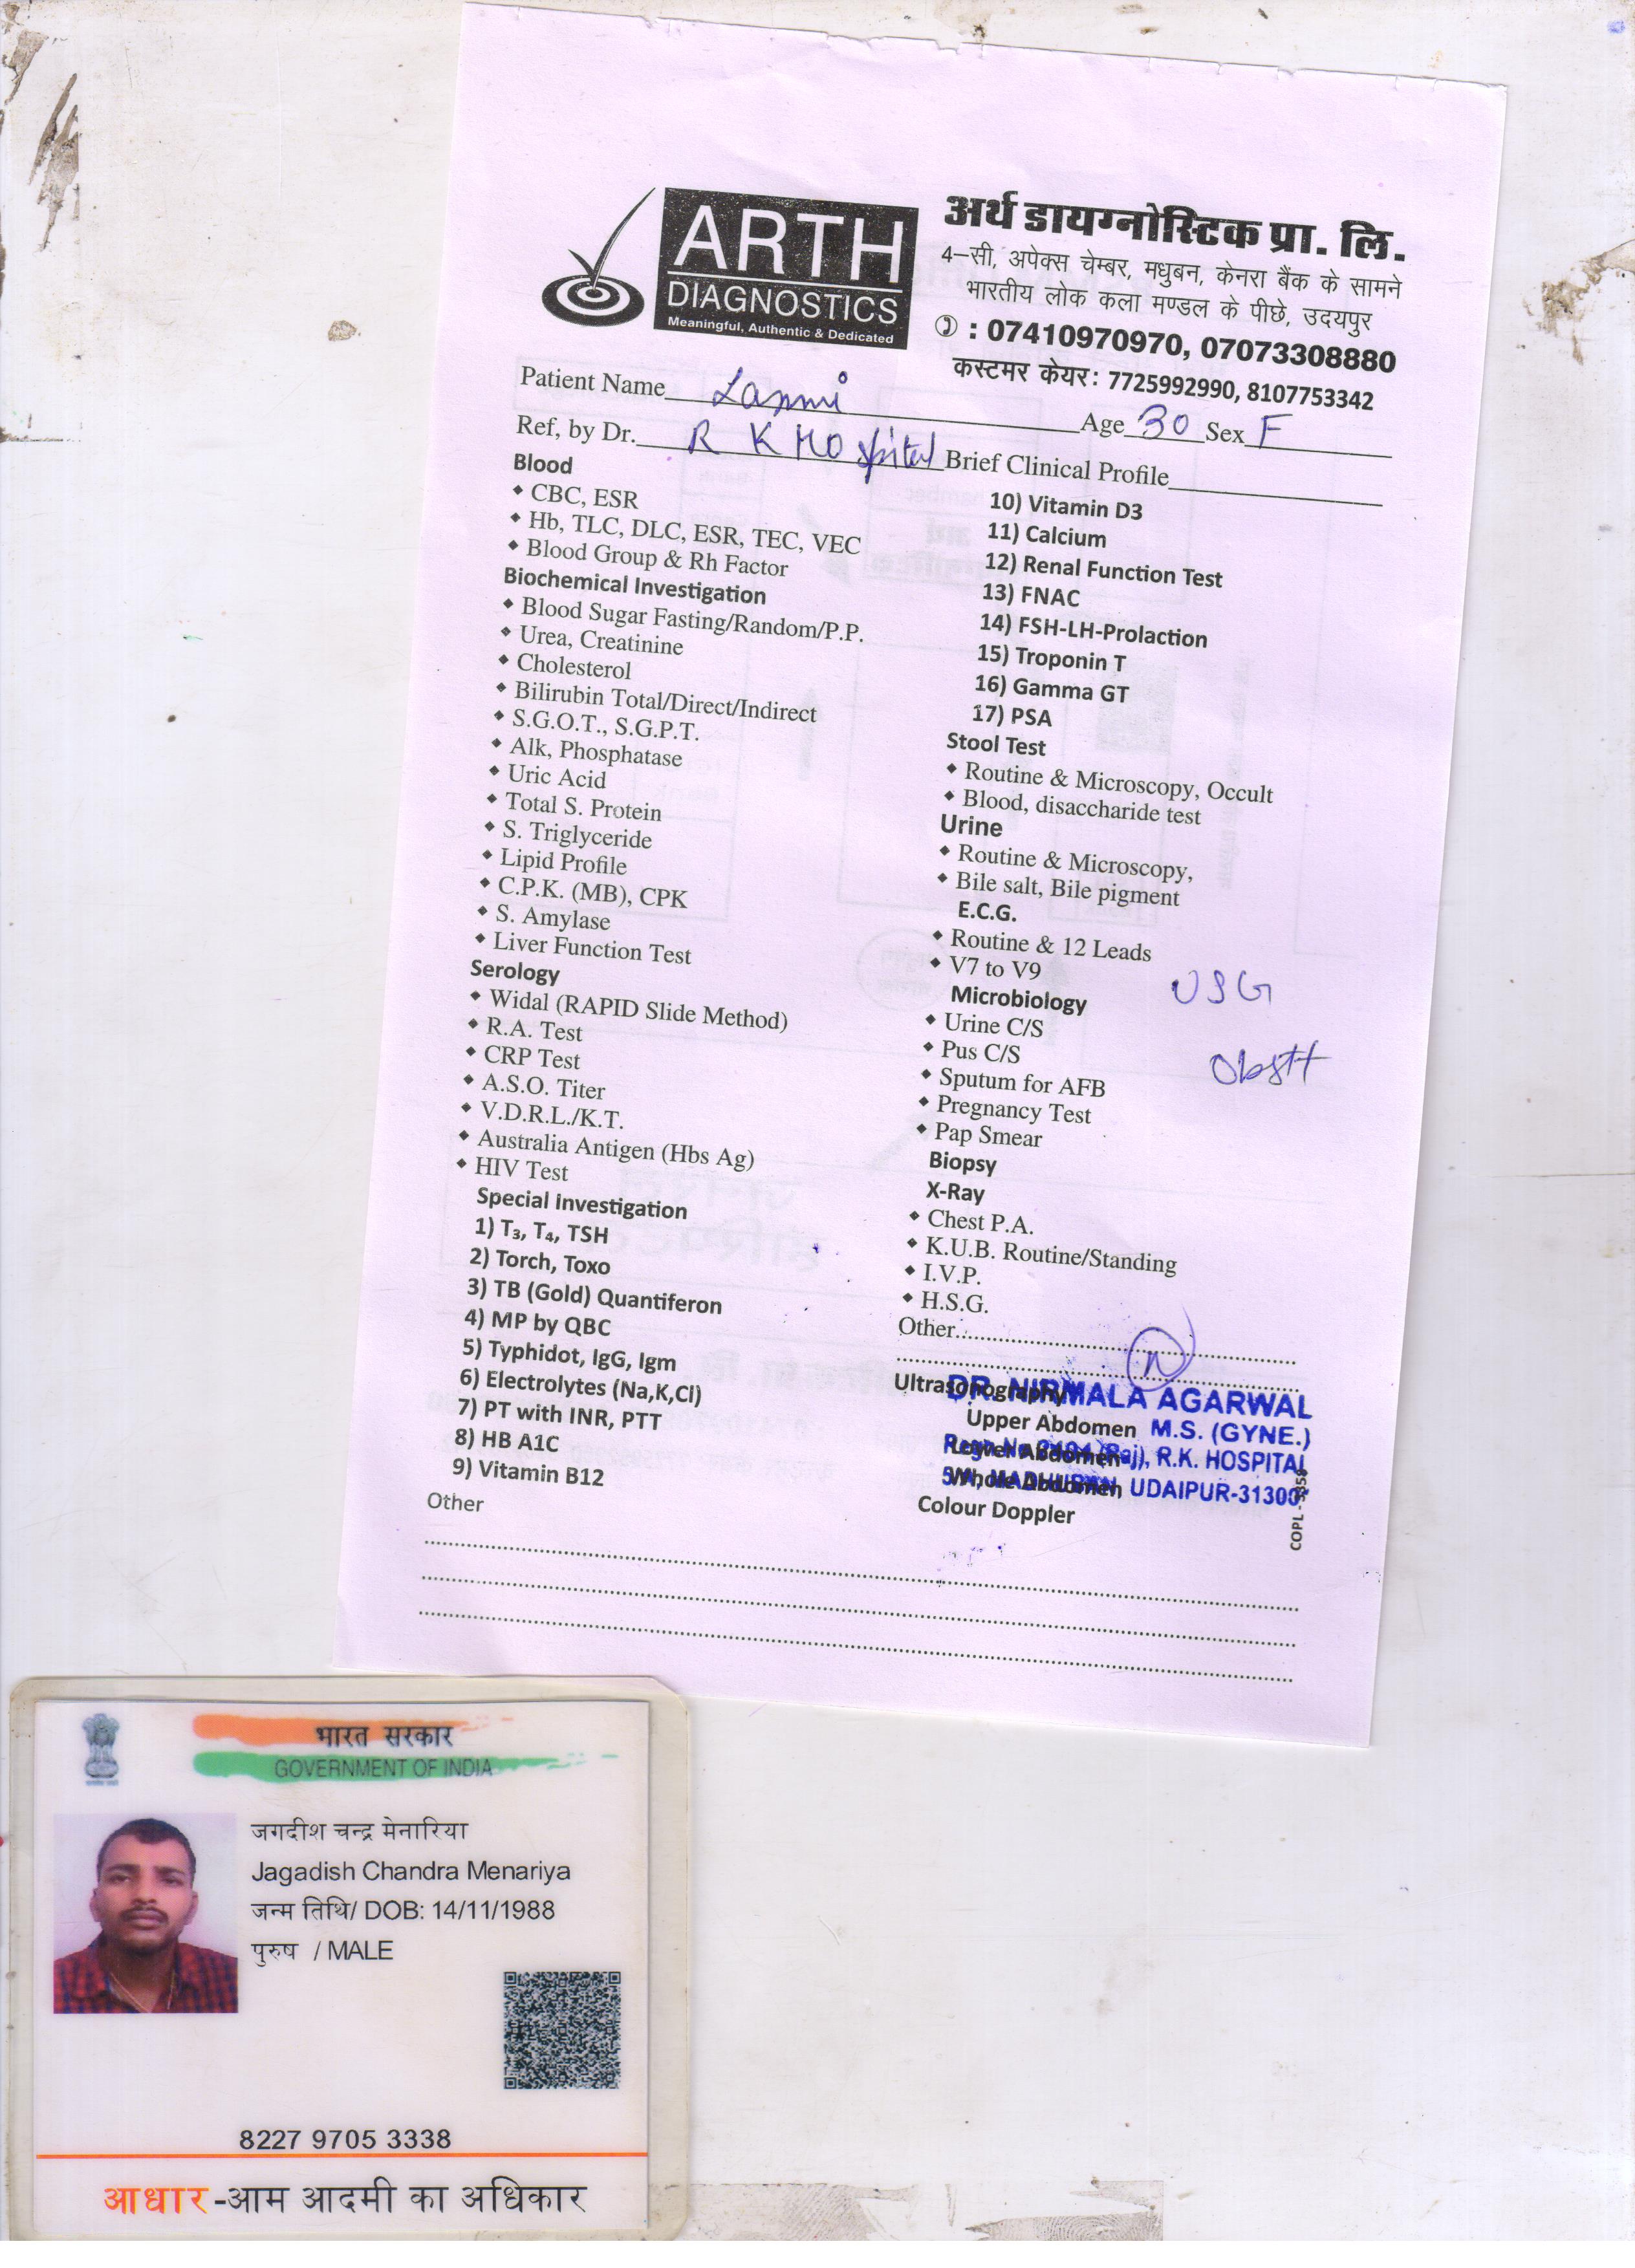 ARTH
DIAGNOSTICS
Meaningful, Authentic & Dedicated
अर्थ डायग्नोस्टिक प्रा. लि.
4–सी, अपेक्स चेम्बर, मधुबन, केनरा बैंक के सामने
भारतीय लोक कला मण्डल के पीछे, उदयपुर
: 07410970970, 07073308880
कस्टमर केयर: 7725992990, 8107753342
Patient Name Laxmi Age 30 Sex F
Ref, by Dr. R K Hospital Brief Clinical Profile
Blood
CBC, ESR
Hb, TLC, DLC, ESR, TEC, VEC
Blood Group & Rh Factor
Biochemical Investigation
Blood Sugar Fasting/Random/P.P.
Urea, Creatinine
Cholesterol
Bilirubin Total/Direct/Indirect
S.G.O.T., S.G.P.T.
Alk, Phosphatase
Uric Acid
Total S. Protein
S. Triglyceride
Lipid Profile
C.P.K. (MB), CPK
S. Amylase
Liver Function Test
Serology
Widal (RAPID Slide Method)
R.A. Test
CRP Test
A.S.O. Titer
V.D.R.L./K.T.
Australia Antigen (Hbs Ag)
HIV Test
Special Investigation
1) T₃, T₄, TSH
2) Torch, Toxo
3) TB (Gold) Quantiferon
4) MP by QBC
5) Typhidot, IgG, Igm
6) Electrolytes (Na,K,Cl)
7) PT with INR, PTT
8) HB A1C
9) Vitamin B12
Other
10) Vitamin D3
11) Calcium
12) Renal Function Test
13) FNAC
14) FSH-LH-Prolaction
15) Troponin T
16) Gamma GT
17) PSA
Stool Test
Routine & Microscopy, Occult
Blood, disaccharide test
Urine
Routine & Microscopy,
Bile salt, Bile pigment
E.C.G.
Routine & 12 Leads
V7 to V9
USG
Microbiology
Urine C/S
Pus C/S
Obstt
Sputum for AFB
Pregnancy Test
Pap Smear
Biopsy
X-Ray
Chest P.A.
K.U.B. Routine/Standing
I.V.P.
H.S.G.
Other
Ultrasonography
DR. NIRMALA AGARWAL
Upper Abdomen
M.S. (GYNE.)
Lower Abdomen
(Raj), R.K. HOSPITAL
Whole Abdomen
MADHUBAN, UDAIPUR-31300
Colour Doppler
भारत सरकार
GOVERNMENT OF INDIA
जगदीश चन्द्र मेनारिया
Jagadish Chandra Menariya
जन्म तिथि/ DOB: 14/11/1988
पुरुष / MALE
8227 9705 3338
आधार-आम आदमी का अधिकार